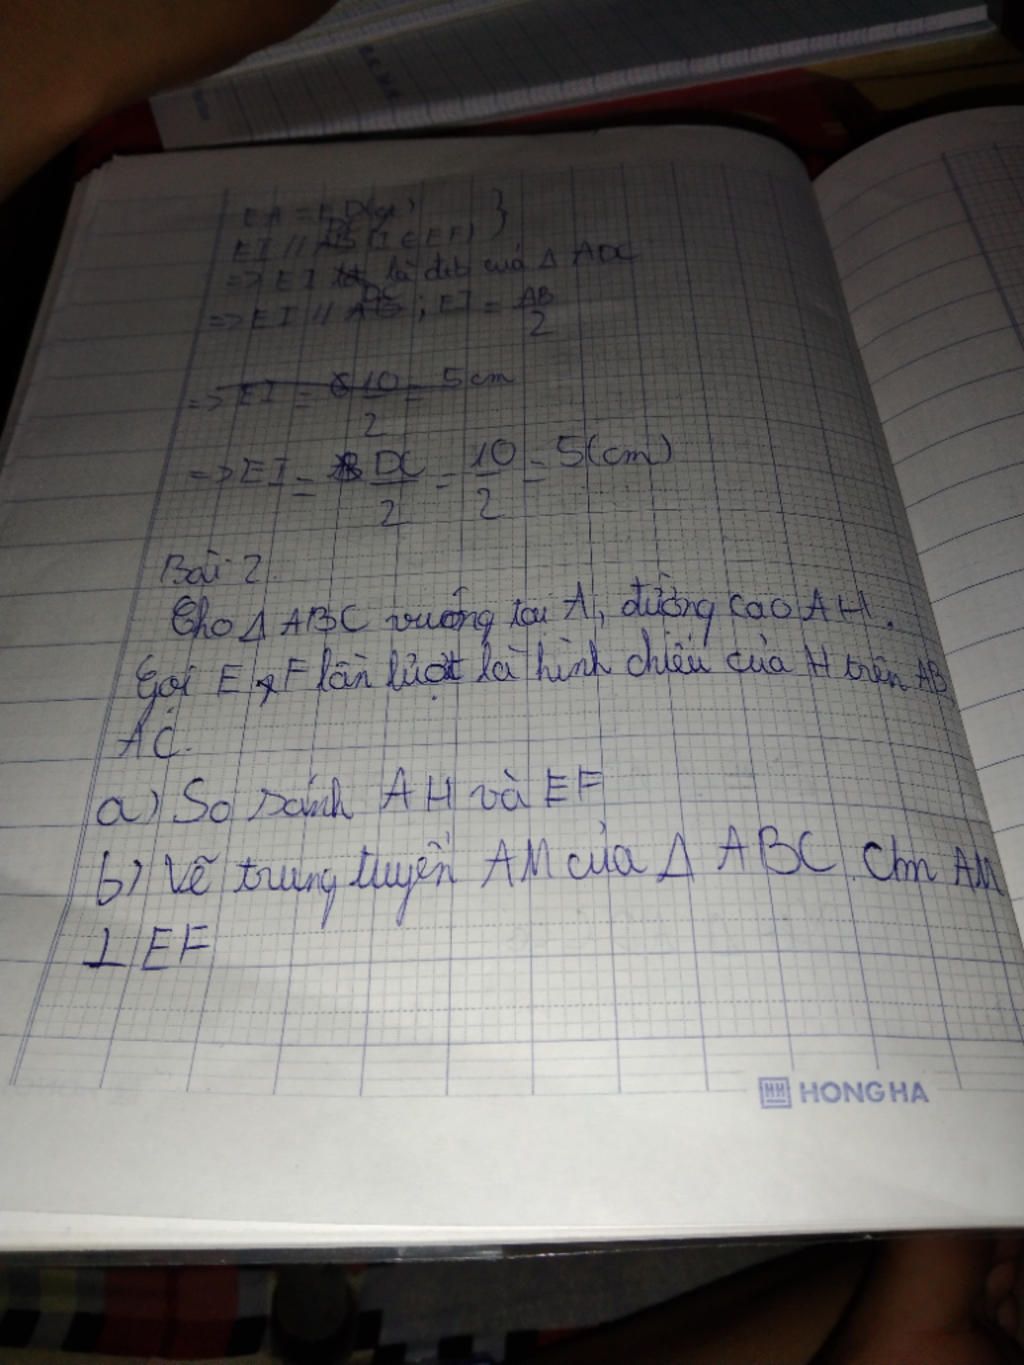 EA = ED (gt) }
EI // DC (I ∈ EF)
=> EI là đtb của Δ ADC
=> EI // DC ; EI = AB/2
=> EI = 10/2 = 5cm
=> EI = DC/2 = 10/2 = 5(cm)
Bài 2.
Cho Δ ABC vuông tại A, đường cao AH.
Gọi E, F lần lượt là hình chiếu của H trên AB
AC.
a) So sánh AH và EF
b) Vẽ trung tuyến AM của Δ ABC. Cm AM
⊥ EF
HH HONG HA